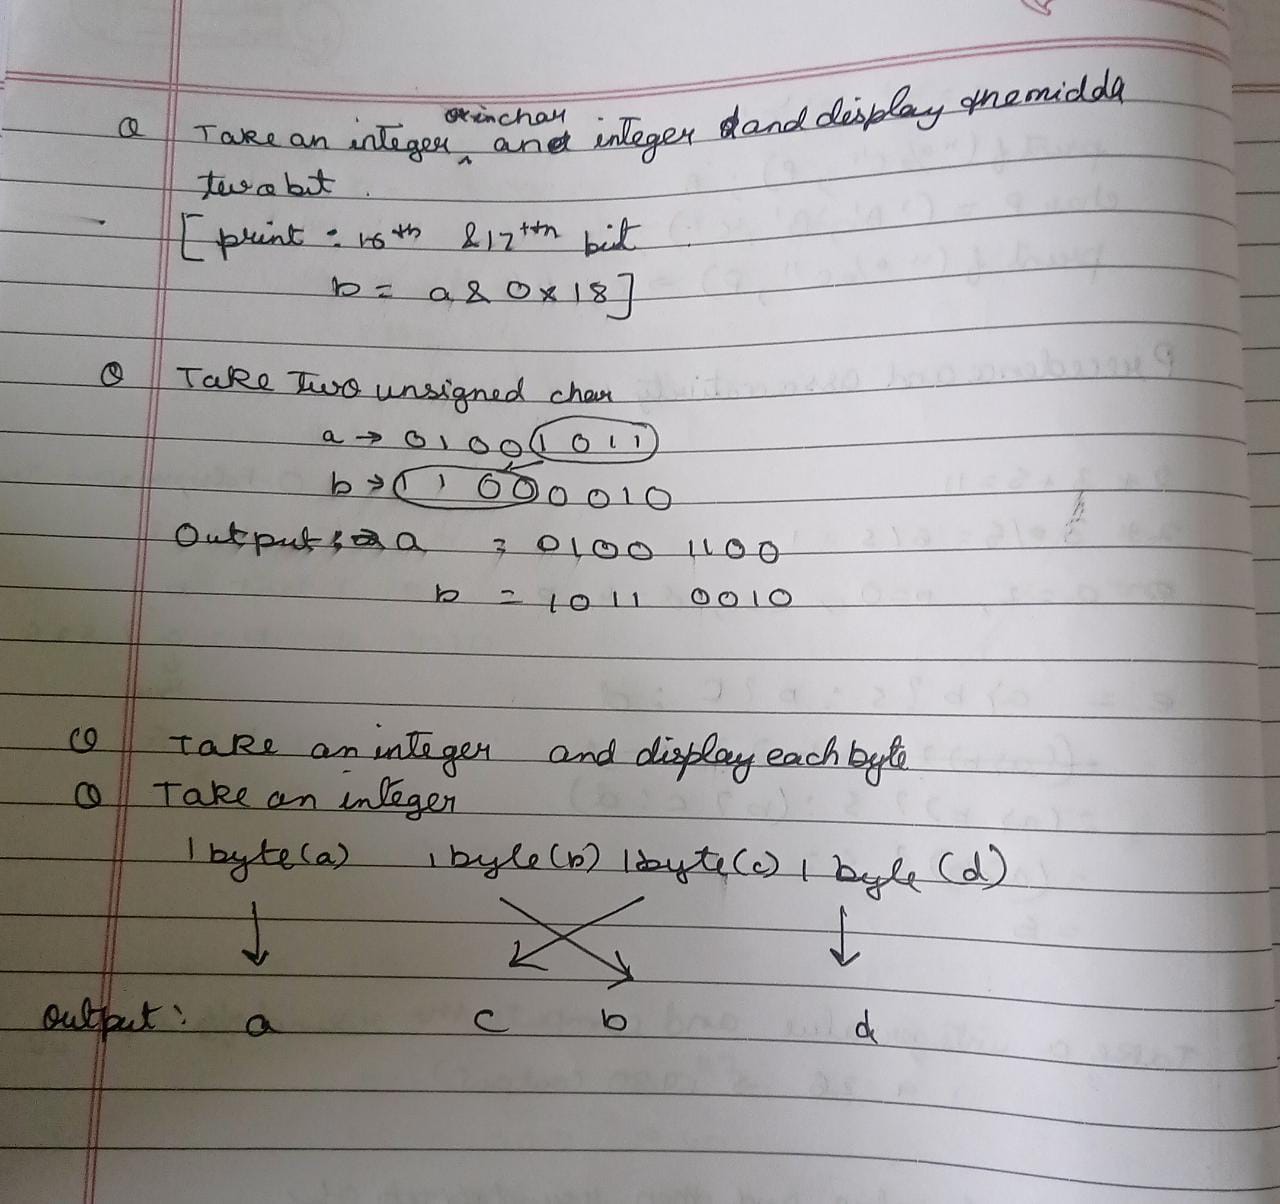 Q Take an integer or in char and integer and display the midda
two bit.
[print : 16th & 17th bit
b = a & 0x18]
Q Take Two unsigned char
a → 01001011
b → 11000010
Output : a = 0100 1100
b = 1011 0010
Q Take an integer and display each byte
Q Take an integer
1 byte(a) 1 byte(b) 1 byte(c) 1 byte(d)
output: a c b d